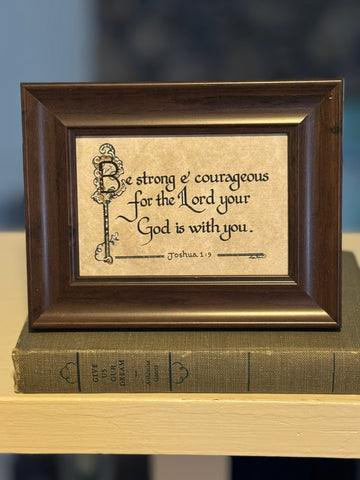 Be strong & courageous
for the Lord your
God is with you.
Joshua 1:9
GIVE
US OUR
DREAM
Goss